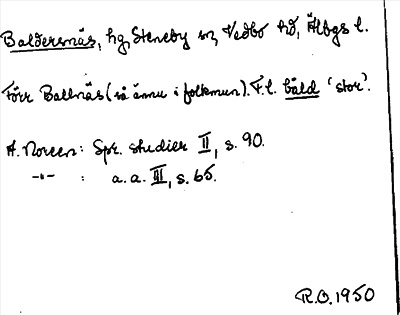 Baldersnäs, hg, Steneby sn, Vedbo hd, Älvbgs l.
Förr Ballnäs (så ännu i folkmun). F.l. båld 'stor'.
A. Noreen: Spr. studier II, s. 90.
-"- : a.a. III, s. 65.
R.O. 1950